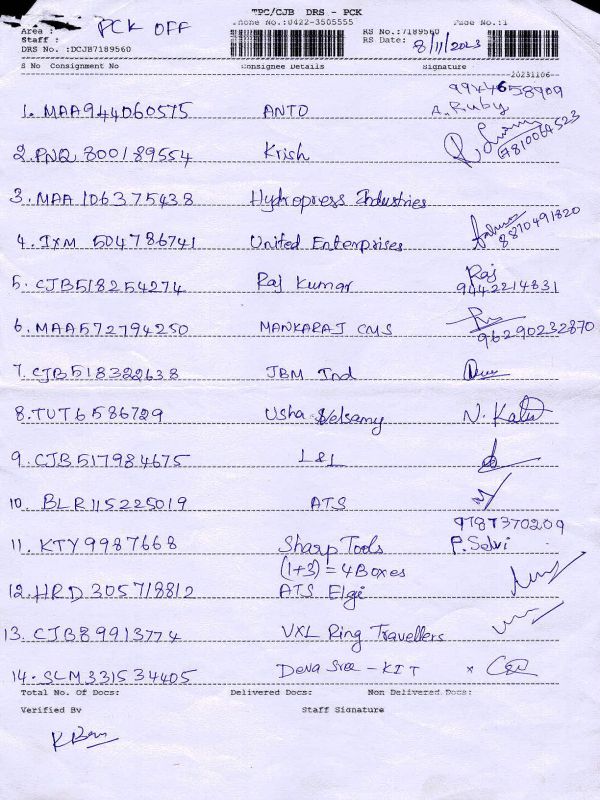 TPC/CJB DRS - PCK
Area : PCK OFF Phone No.:0422-3505555 Page No.:1
Staff : RS No.:7189560
DRS No. :DCJB7189560 RS Date: 8/11/2023
S No Consignment No Consignee Details Signature
20231106
9944658909
1. MAA944060575 ANTO A. Ruby
2. PNQ 300189554 Krish 7810064523
3. MAA 106375438 Hydropress Industries
4. IXM 504786741 United Enterprises 8870491820
5. CJB518254274 Raj Kumar Raj 9442214831
6. MAA572794250 MANKARAJ CMS 96290232870
7. CJB518322638 JBM Ind
8. TUT6586729 Usha Velsamy N.
9. CJB517984675 L&L
10. BLR115225019 ATS
9787370209
11. KTY9987668 Sharp Tools P. Selvi
(1+3) = 4 Boxes
12. HRD 305718812 ATS Elgi
13. CJB89913774 VXL Ring Travellers
14. SLM331534405 Deva Sree - KIT x
Total No. Of Docs: Delivered Docs: Non Delivered Docs:
Verified By Staff Signature